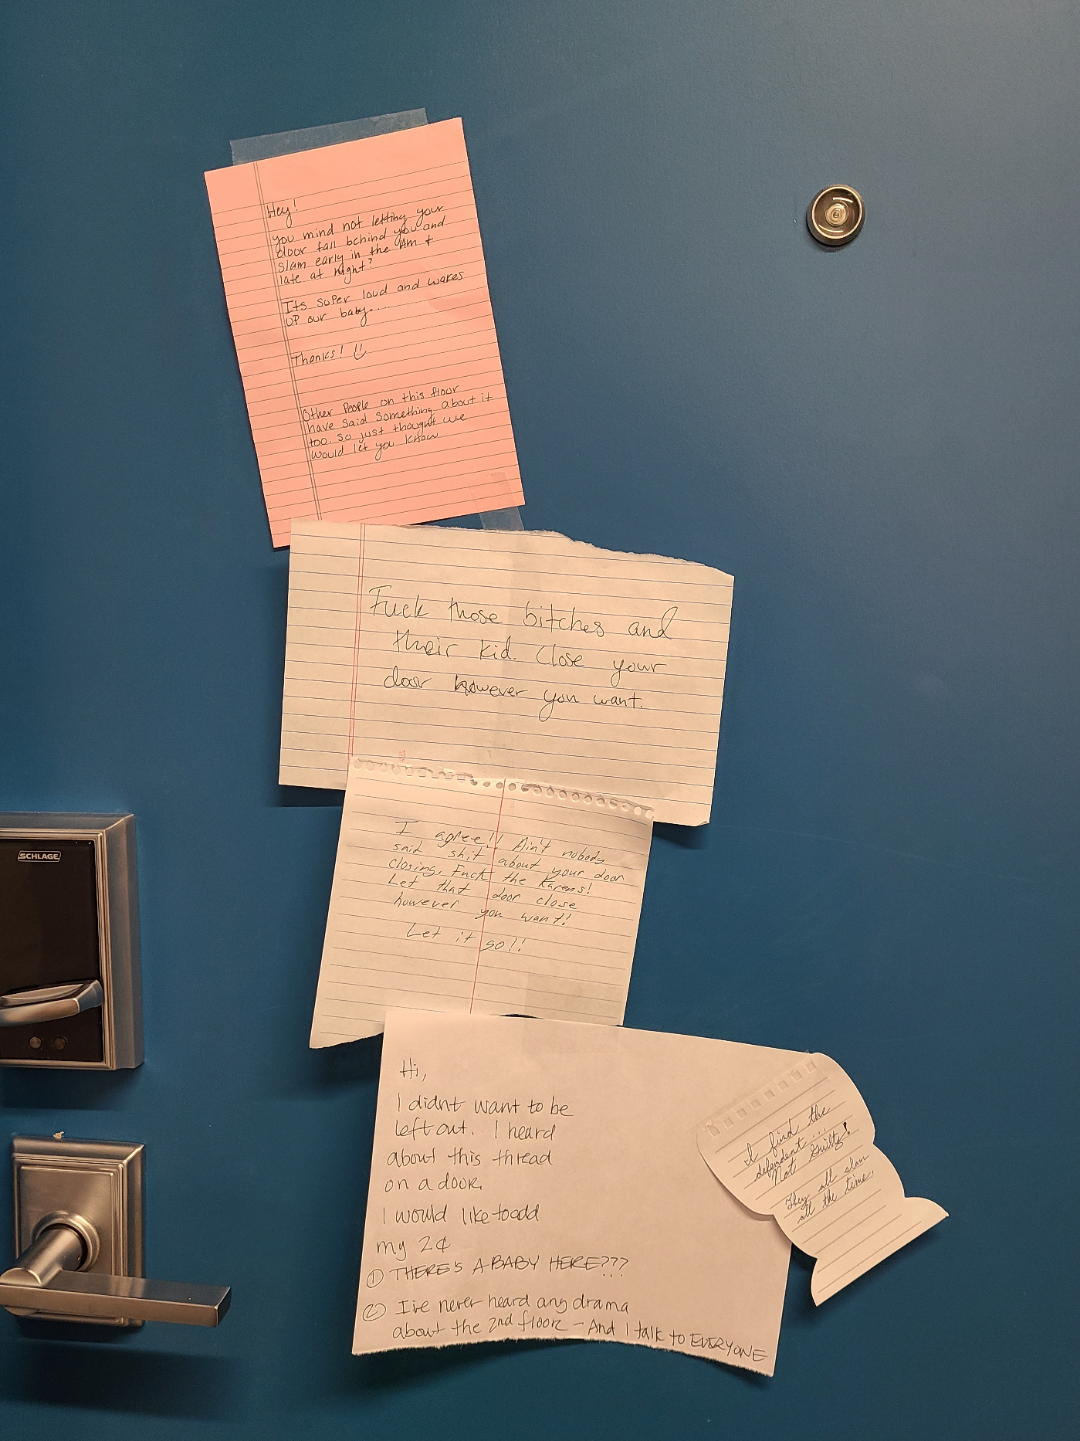 Hey!
you mind not letting your
door fall behind you and
slam early in the Am &
late at night?
Its super loud and wakes
up our baby....
Thanks!
Other People on this floor
have said something about it
too. so just thought we
would let you know
Fuck those bitches and
their kid. Close your
door however you want.
I agree!! Ain't nobody
said shit about your door
closing. Fuck the Karens!
Let that door close
however you want!
Let it go!!
SCHLAGE
Hi,
I didnt want to be
left out. I heard
about this thread
on a door.
I would like to add
my 2¢
① THERE'S A BABY HERE???
② I've never heard any drama
about the 2nd floor - And I talk to EVERYONE
I find the
defendent...
Not Guilty!
They all slam
all the time.